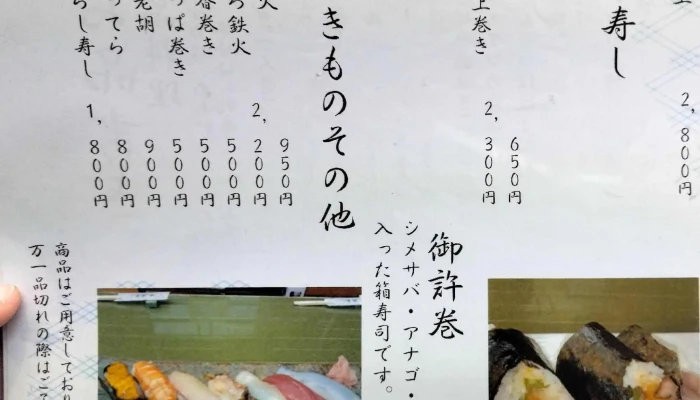 2,800円
寿し
650円
上巻き 2,300円
きものその他
950円
火 2,200円
鉄火 500円
巻き 500円
っぱ巻き 500円
老胡 900円
ってら 800円
らし寿し 1,800円
御許巻
シメサバ・アナゴ・
入った箱寿司です。
商品はご用意しており
万一品切れの際はご